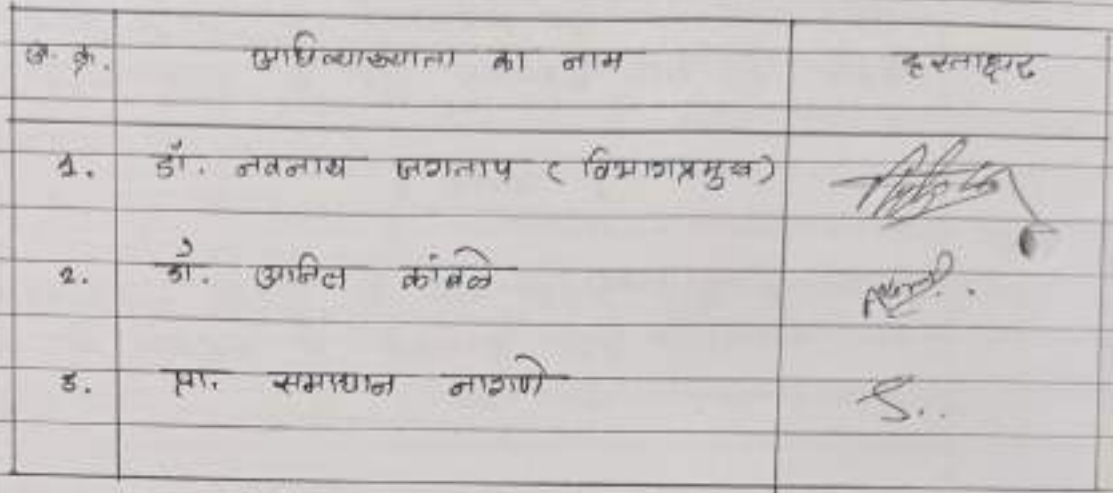 अ. क्र. अधिव्याख्याता का नाम हस्ताक्षर
1. डॉ. नवनाथ जगताप (विभागप्रमुख)
2. डॉ. अनिल कांबळे
3. प्रा. समाधान नागणे